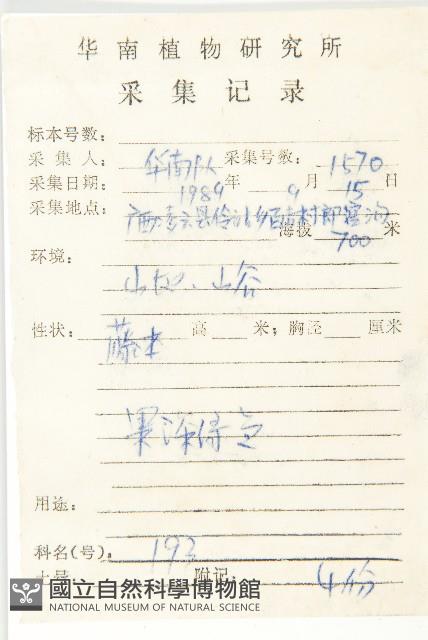 华南植物研究所
采集记录
标本号数：
采集人：华南队 采集号数：1570
采集日期：1989年9月15日
采集地点：广西凌云县伶站乡
海拔700米
环境：
山地、山谷
性状：藤本 高 米；胸径 厘米
果深绿色
用途：
科名(号)：193
附记：4份
國立自然科學博物館
NATIONAL MUSEUM OF NATURAL SCIENCE